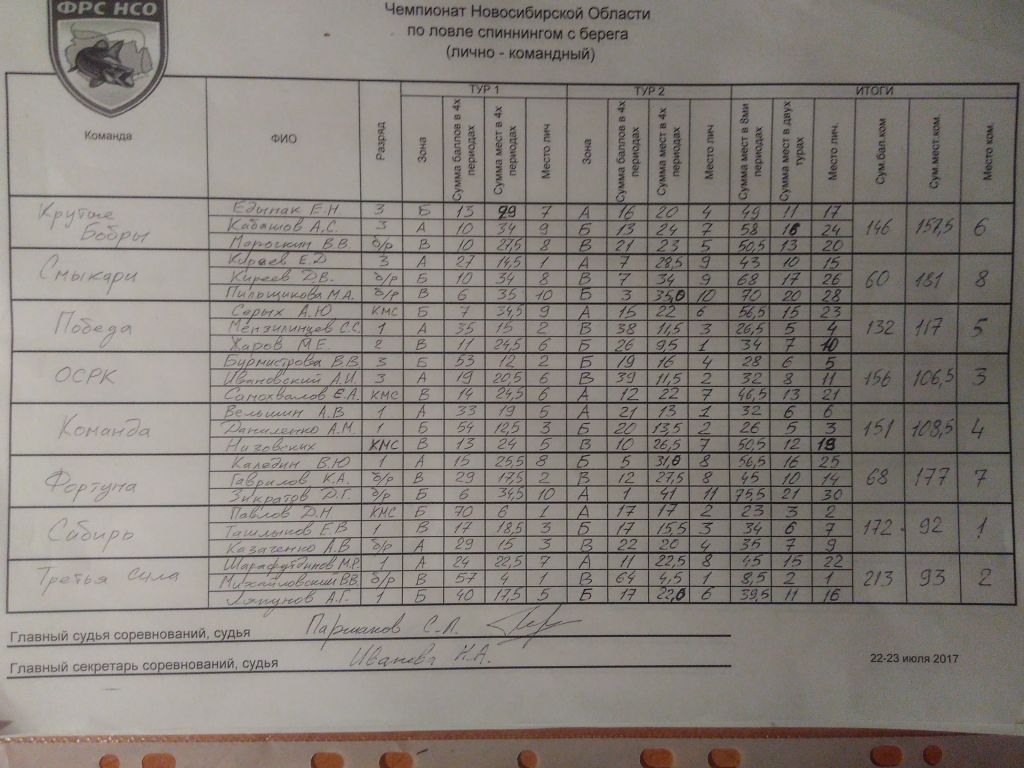 ФРС НСО
Чемпионат Новосибирской Области
по ловле спиннингом с берега
(лично - командный)
Команда ФИО Разряд ТУР 1 ТУР 2 ИТОГИ
Зона Сумма баллов в 4х периодах Сумма мест в 4х периодах Место лич Зона Сумма баллов в 4х периодах Сумма мест в 4х периодах Место лич Сумма мест в 8ми периодах Сумма мест в двух турах Место лич. Сум.бал.ком Сум.мест.ком. Место ком.
Крутые Бобры 146 157,5 6
Едынак Е.Н 3 Б 13 29 7 А 16 20 4 49 11 17
Кабашов А.С. 3 А 10 34 9 Б 13 24 7 58 16 24
Морочкин В.В б/р В 10 27,5 8 В 21 23 5 50,5 13 20
Смыкари 60 181 8
Кираев Е.Д 3 А 27 14,5 1 А 7 28,5 9 43 10 15
Киреев Д.В. б/р Б 10 34 8 В 7 34 9 68 17 26
Пильщикова М.А. б/р В 6 35 10 Б 3 35,0 10 70 20 28
Победа 132 117 5
Серых А.Ю КМС Б 7 34,5 9 А 15 22 6 56,5 15 23
Мензилинцев С.С 1 А 35 15 2 В 38 11,5 3 26,5 5 4
Жаров М.Е. 2 В 11 24,5 6 Б 26 9,5 1 34 7 10
ОСРК 156 106,5 3
Бурмистрова В.В 3 Б 53 12 2 Б 19 16 4 28 6 5
Ивановский А.И. 3 А 19 20,5 6 В 39 11,5 2 32 8 11
Самохвалов Е.А. КМС В 14 24,5 6 А 12 22 7 46,5 13 21
Команда 151 108,5 4
Вельшин А.В 1 А 33 19 5 А 21 13 1 32 6 6
Даниленко А.М. 1 Б 54 12,5 3 Б 20 13,5 2 26 5 3
Низовских КМС В 13 24 5 В 10 26,5 7 50,5 12 19
Фортуна 68 177 7
Каледин В.Ю 1 А 15 25,5 8 Б 5 31,0 8 56,5 16 25
Гаврилов К.А. б/р В 29 17,5 2 В 12 27,5 8 45 10 14
Зикратов Д.Г. б/р Б 6 34,5 10 А 1 41 11 75,5 21 30
Сибирь 172 92 1
Павлов Д.Н КМС Б 70 6 1 А 17 17 2 23 3 2
Ташлыков Е.В 1 В 17 18,5 3 Б 17 15,5 3 34 6 7
Казаченко А.В б/р А 29 15 3 В 22 20 4 35 7 9
Третья Сила 213 93 2
Шарафутдинов М.Р. 1 А 24 22,5 7 А 11 22,5 8 45 15 22
Михайловский В.В. б/р В 57 4 1 В 64 4,5 1 8,5 2 1
Ляпунов А.Г. 1 Б 40 17,5 5 Б 17 22,0 6 39,5 11 16
Главный судья соревнований, судья Парманов С.Л.
Главный секретарь соревнований, судья Иванова Н.А.
22-23 июля 2017